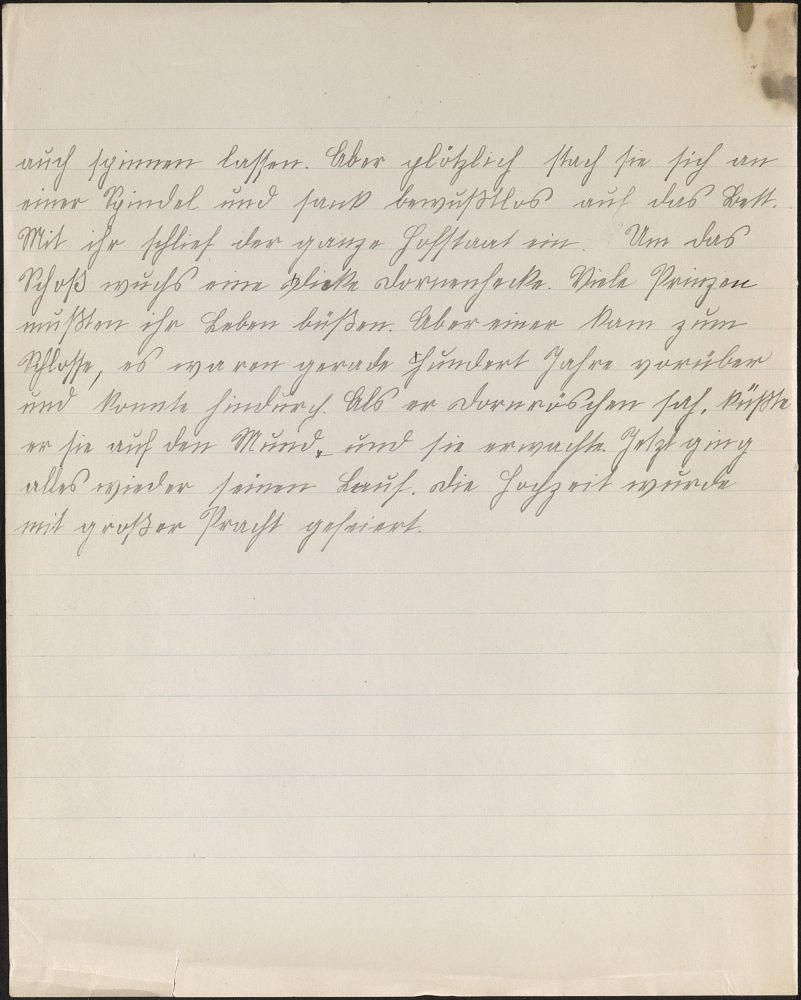 auch spinnen lassen. Aber plötzlich stach sie sich an
einer Spindel und sank bewußtlos auf das Bett.
Mit ihr schlief der ganze Hofstaat ein. Um das
Schoß wuchs eine dicke Dornenhecke. Viele Prinzen
mußten ihr Leben büßen. Aber einer kam zum
Schlosse, es waren gerade hundert Jahre vorüber
und konnte hindurch. Als er Dornröschen sah, küßte
er sie auf den Mund, und sie erwachte. Jetzt ging
alles wieder seinen Lauf. Die Hochzeit wurde
mit großer Pracht gefeiert.